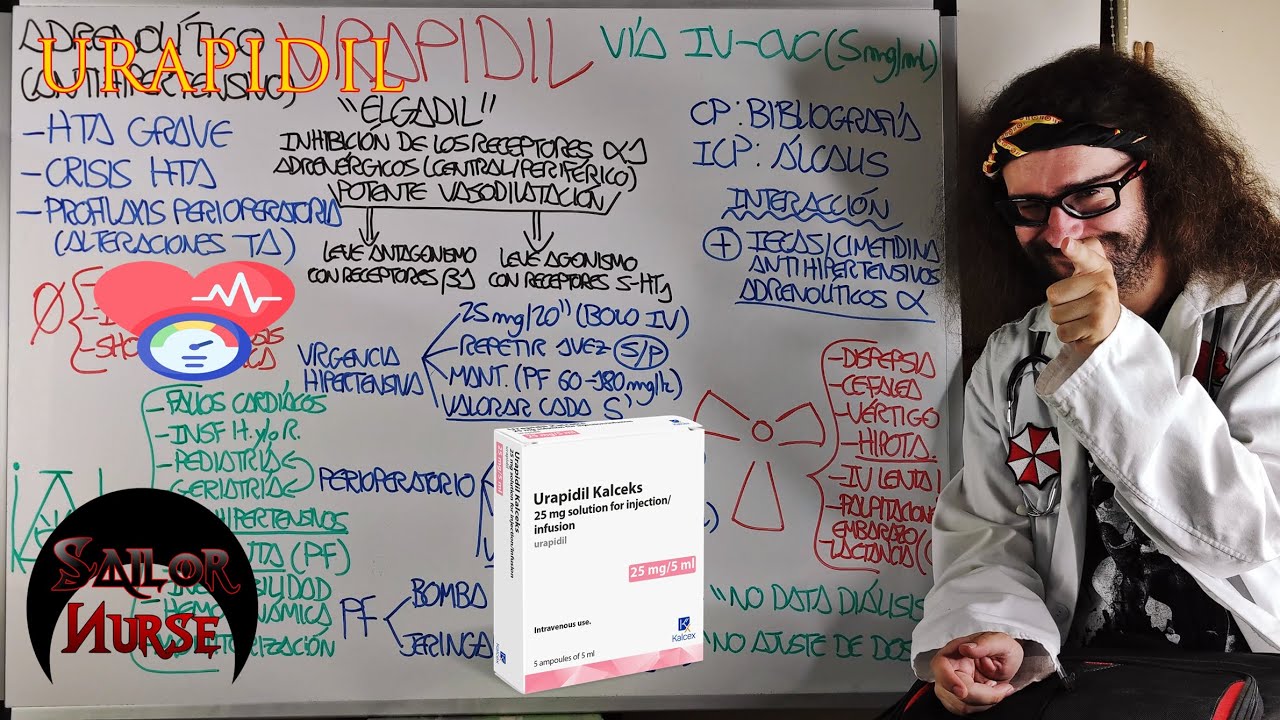 URAPIDIL
URAPIDIL
VÍA IV-CVC (5mg/mL)
ADRENOLÍTICO
(ANTIHIPERTENSIVO)
-HTA GRAVE
-CRISIS HTA
-PROFILAXIS PERIOPERATORIA
(ALTERACIONES TA)
"ELGADIL"
INHIBICIÓN DE LOS RECEPTORES α1
ADRENÉRGICOS (CENTRAL/PERIFÉRICO)
POTENTE VASODILATACIÓN
LEVE ANTAGONISMO
CON RECEPTORES β1
LEVE AGONISMO
CON RECEPTORES 5-HT1
CP: BIBLIOGRAFÍA
ICP: ÁLCALIS
INTERACCIÓN
+ IECAS/CIMETIDINA
ANTIHIPERTENSIVOS
ADRENOLÍTICOS α
Ø
URGENCIA
HIPERTENSIVA
25mg/20'' (BOLO IV)
-REPETIR 1 VEZ S/P
-MANT. (PF 60-180mg/h)
VALORAR CADA 5'
-FALLOS CARDÍACOS
-INSF H. y/o R.
-PEDIATRÍA
GERIATRÍA
HIPERTENSIVOS
(PF)
PERIOPERATORIO
PF
BOMBA
JERINGA
-DISPEPSIA
-CEFALEA
-VÉRTIGO
-HIPOTA.
-IV LENTA
-PALPITACIONES
EMBARAZO/
LACTANCIA
"NO DATA DIÁLISIS
"NO AJUSTE DE DOS
Urapidil Kalceks
25 mg solution for injection/
infusion
urapidil
25 mg/5 ml
Intravenous use.
Kalcex
5 ampoules of 5 ml
Urapidil Kalceks
25 mg solution for injection/infusion
25 mg/5 ml
SAILOR
NURSE